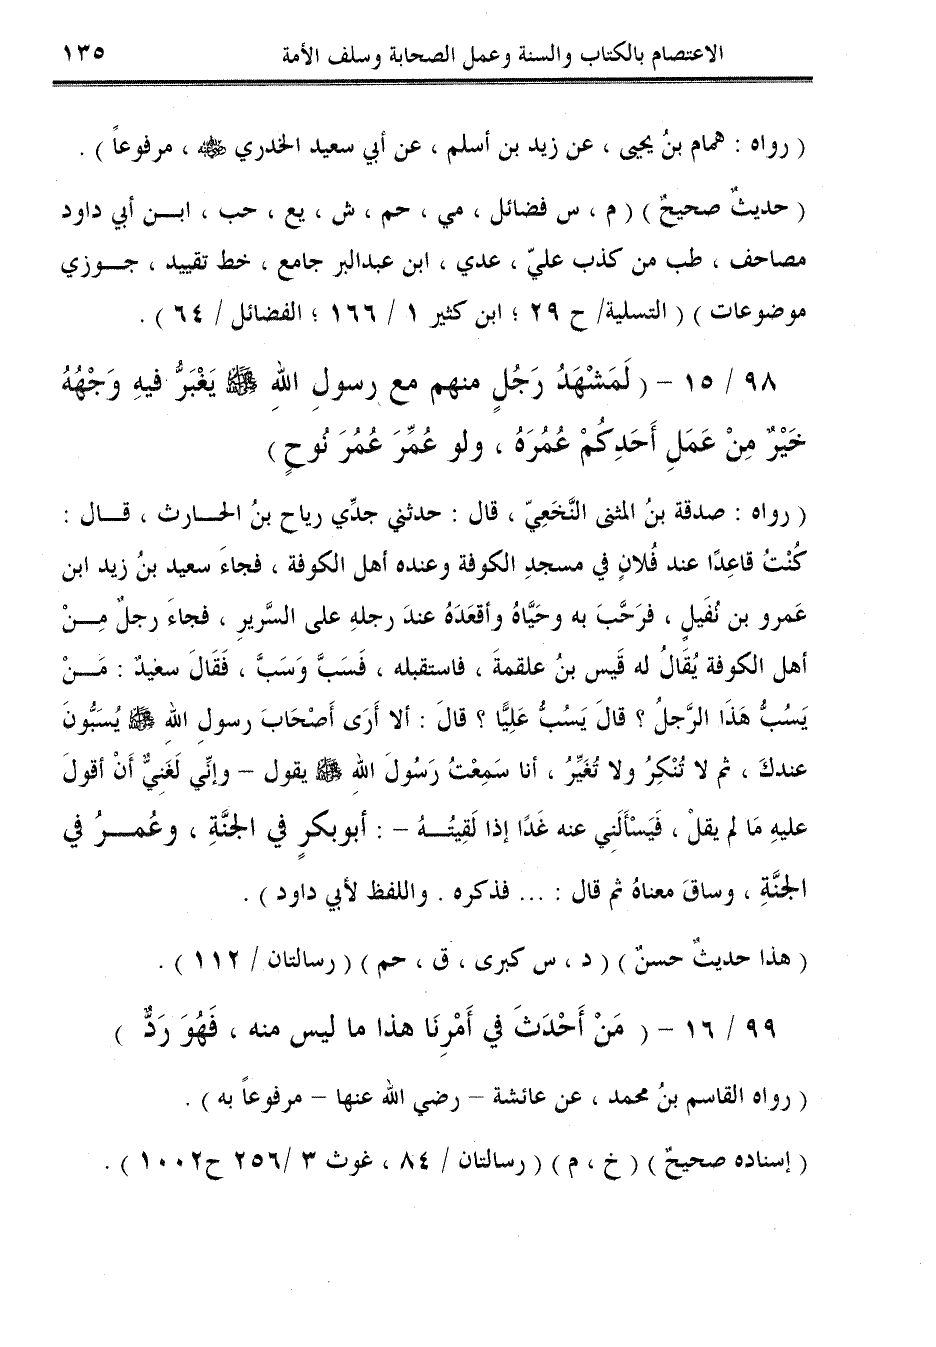 الاعتصام بالكتاب والسنة وعمل الصحابة وسلف الأمة ١٣٥
( رواه : همام بنُ يحيى ، عن زيد بن أسلم ، عن أبي سعيد الخدري ﷺ ، مرفوعاً ) .
( حديثٌ صحيحٌ ) ( م ، س فضائل ، مي ، حم ، ش ، يع ، حب ، ابـــن أبي داود
مصاحف ، طب من كذب عليّ ، عدي ، ابن عبدالبر جامع ، خط تقييد ، جــوزي
موضوعات ) ( التسلية/ ح ٢٩ ؛ ابن كثير ١ / ١٦٦ ؛ الفضائل / ٦٤ ) .
٩٨ / ١٥ – ( لَمَشْهَدُ رَجُلٍ منهم مع رسولِ اللهِ ﷺ يَغْبَرُّ فيهِ وَجْهُهُ
خَيْرٌ مِنْ عَمَلِ أَحَدِكُمْ عُمُرَهُ ، ولو عُمِّرَ عُمُرَ نُوحٍ )
( رواه : صدقة بنُ المثنى النَّخَعِيّ ، قال : حدثني جدِّي رياح بنُ الحـــارث ، قـــال :
كُنْتُ قاعِدًا عند فُلانٍ في مسجدِ الكوفة وعنده أهل الكوفة ، فجاءَ سعيد بنُ زيد ابن
عَمرو بن نُفَيلٍ ، فرَحَّبَ به وحَيَّاهُ وأقعَدَهُ عندَ رجلهِ على السَّريرِ ، فجاءَ رجلٌ مِــنْ
أهل الكوفة يُقَالُ له قَيس بنُ علقمةَ ، فاستقبله ، فَسَبَّ وَسَبَّ ، فَقَالَ سعيدٌ : مَــنْ
يَسُبُّ هَذَا الرَّجلُ ؟ قالَ يَسُبُّ عَلِيًّا ؟ قالَ : ألا أَرَى أَصْحَابَ رسولِ اللهِ ﷺ يُسَبُّونَ
عندكَ ، ثم لا تُنْكِرُ ولا تُغَيِّرُ ، أنا سَمِعْتُ رَسُولَ اللهِ ﷺ يقول – وإنِّي لَغَنِيٌّ أَنْ أقولَ
عليهِ مَا لم يقلْ ، فَيَسْأَلَنِي عنه غَدًا إذا لَقِيتُــهُ – : أبوبكرٍ في الجنَّةِ ، وعُمــرُ في
الجنَّةِ ، وساقَ معناهُ ثم قال : ... فذكره . واللفظ لأبي داود ) .
( هذا حديثٌ حسنٌ ) ( د ، س كبرى ، ق ، حم ) ( رسالتان / ١١٢ ) .
٩٩ / ١٦ – ( مَنْ أَحْدَثَ في أَمْرِنَا هذا ما ليس منه ، فَهُوَ رَدٌّ )
( رواه القاسم بنُ محمد ، عن عائشة – رضي الله عنها – مرفوعاً به ) .
( إسناده صحيحٌ ) ( خ ، م ) ( رسالتان / ٨٤ ، غوث ٣ /٢٥٦ ح١٠٠٢ ) .